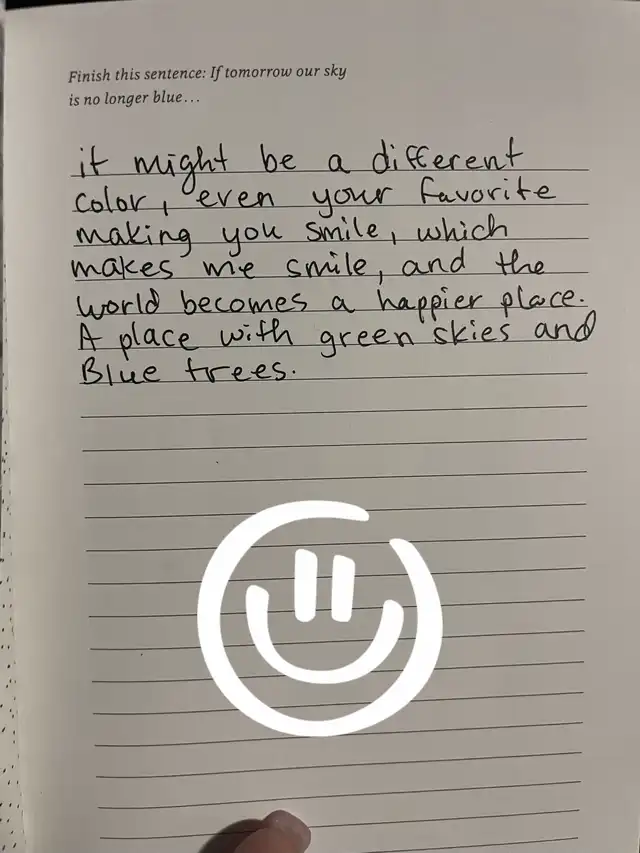 Finish this sentence: If tomorrow our sky
is no longer blue...
it might be a different
color, even your favorite
making you smile, which
makes me smile, and the
world becomes a happier place.
A place with green skies and
Blue trees.